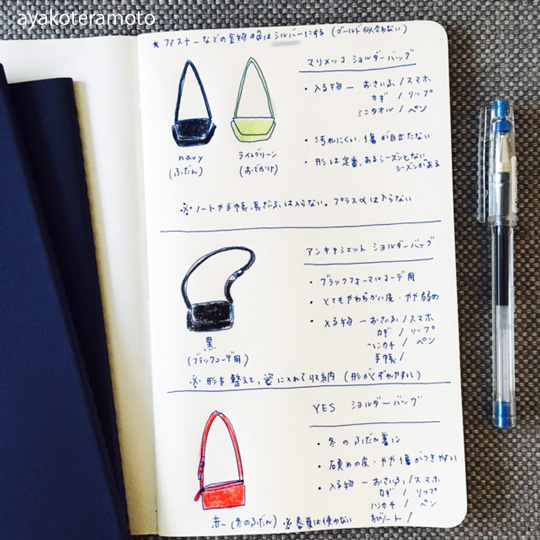 ayakoteramoto
★ファスナーなどの金物の色はシルバーにする(ゴールド似合わない)
マリメッコ ショルダーバッグ
・入る物 ― おさいふ/スマホ
カギ / リップ
ミニタオル / ペン
・汚れにくい、傷が目立たない
・形は定番、あるシーズンとない
シーズンがある
navy
(ふだん)
ライムグリーン
(おでかけ)
※ノートや手帳、長ざいふは入らない。プラスαは入らない
アンキャシェット ショルダーバッグ
・ブラックフォーマルコーデ用
・とてもやわらかい皮・やや弱め
・入る物 ― おさいふ/スマホ
カギ / リップ
ハンカチ / ペン
手帳/
黒
(ブラックコーデ用)
※形を整えて、袋に入れて収納(形がくずれやすい)
YES ショルダーバッグ
・冬のふだん着に
・硬めの皮・やや傷がつきやすい
・入る物 ― おさいふ/スマホ
カギ / リップ
ハンカチ / ペン
ノート/
赤(冬のふだん) ※春夏は使わない